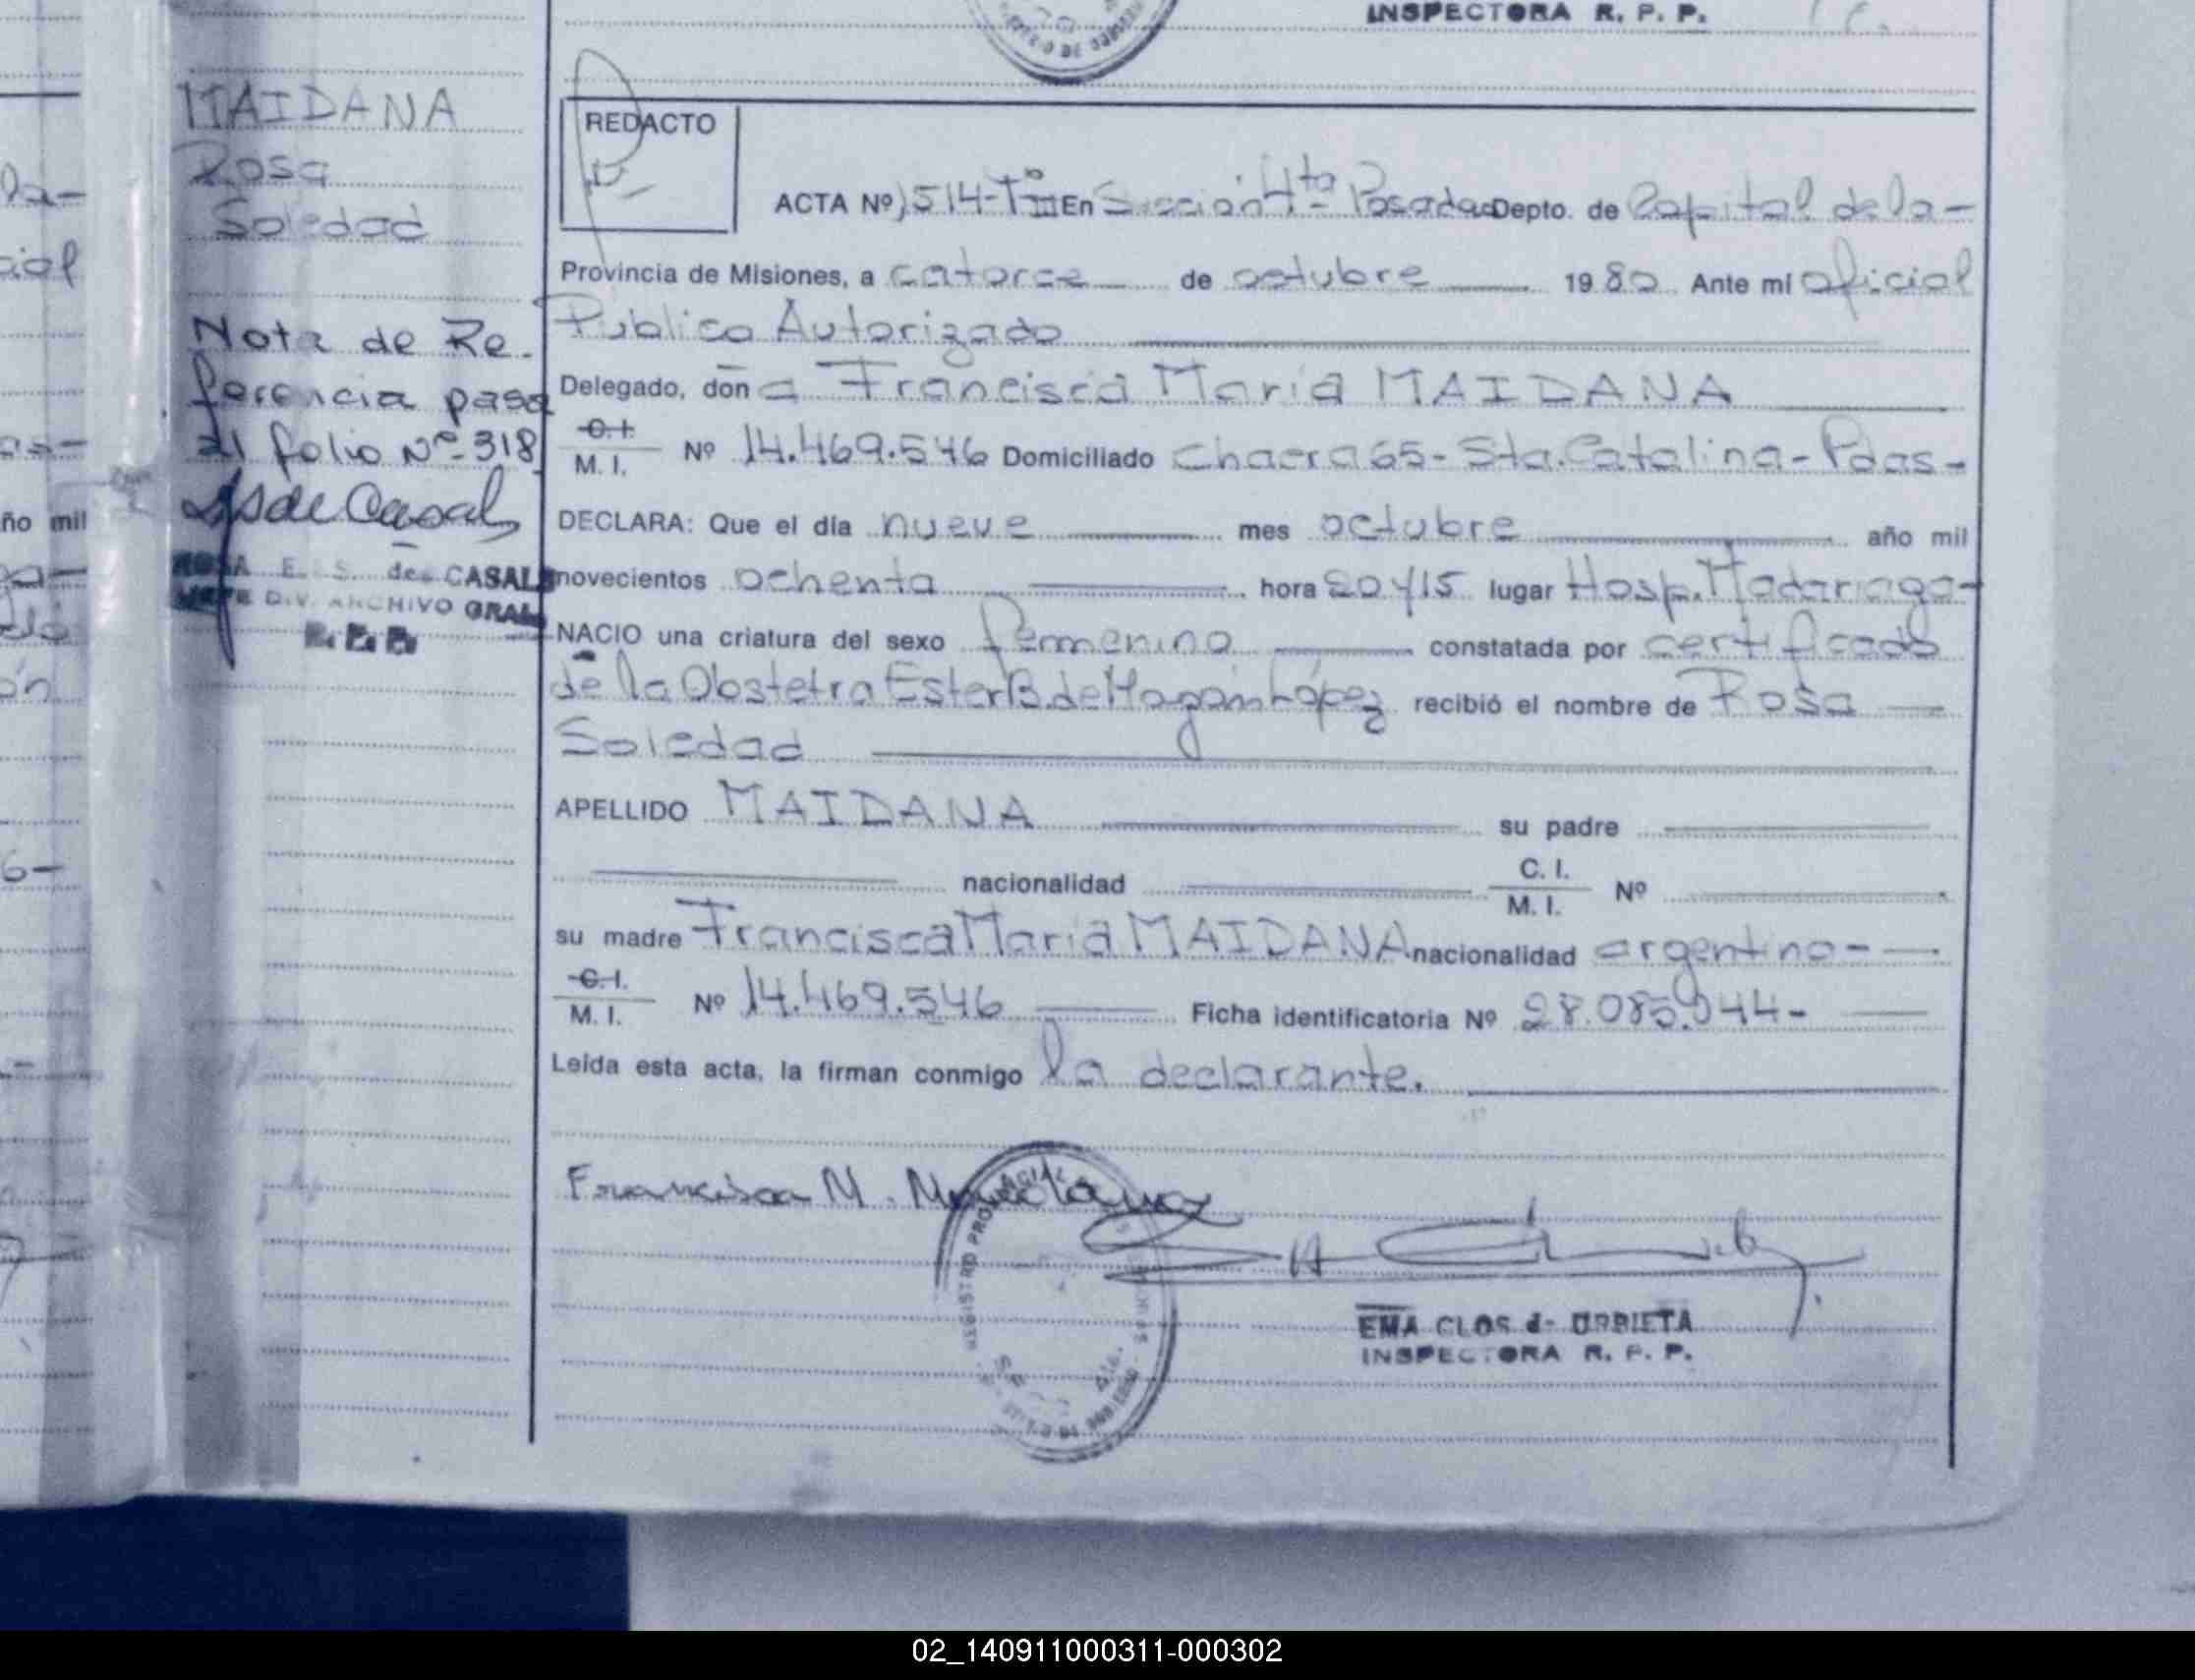 INSPECTORA R. P. P.
MAIDANA
Rosa
Soledad
Nota de Re-
ferencia pasa
al folio Nº 318
ROSA E. S. de CASALS
JEFE DIV. ARCHIVO GRAL
R. P. P.
REDACTO
ACTA Nº 1514-Tº III En Sección 4ta Posadas Depto. de Capital de la-
Provincia de Misiones, a catorce de octubre 1980 Ante mí oficial
Publico Autorizado
Delegado, don a Francisca Maria MAIDANA
C. I.
M. I. Nº 14.469.546 Domiciliado Chacra 65-Sta. Catalina-Pdas-
DECLARA: Que el día nueve mes octubre año mil
novecientos ochenta hora 20 y 15 lugar Hosp. Madariaga-
NACIO una criatura del sexo femenino constatada por certificado
de la Obstetra Ester B. de López recibió el nombre de Rosa
Soledad
APELLIDO MAIDANA su padre
nacionalidad C. I.
M. I. Nº
su madre Francisca Maria MAIDANA nacionalidad argentina-
C. I.
M. I. Nº 14.469.546 Ficha identificatoria Nº 28.085.044-
Leída esta acta, la firman conmigo la declarante.
Francisca M. Maidana
REGISTRO PROVINCIAL
EMA CLOS de URRIETA
INSPECTORA R. P. P.
año mil
02_140911000311-000302